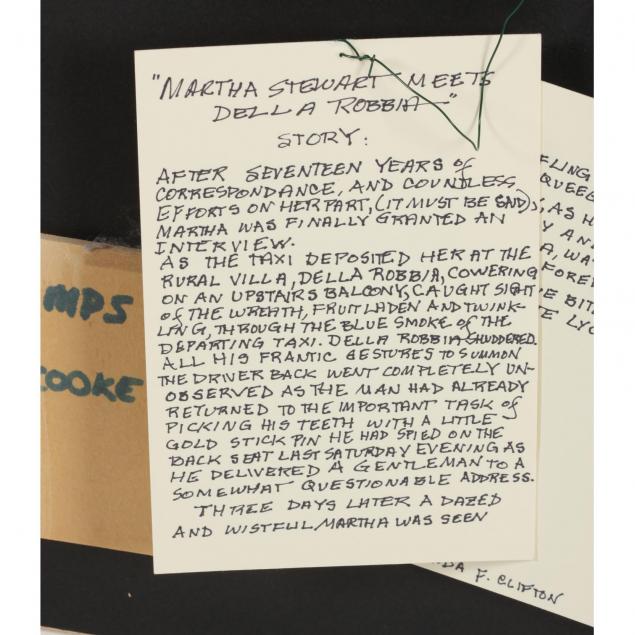 "MARTHA STEWART MEETS
DELLA ROBBIA"
STORY:
AFTER SEVENTEEN YEARS of
CORRESPONDANCE, AND COUNTLESS
EFFORTS ON HER PART, (IT MUST BE SAID),
MARTHA WAS FINALLY GRANTED AN
INTERVIEW.
AS THE TAXI DEPOSITED HER AT THE
RURAL VILLA, DELLA ROBBIA, COWERING
ON AN UPSTAIRS BALCONY, CAUGHT SIGHT
of THE WREATH, FRUIT LADEN AND TWINK-
LING, THROUGH THE BLUE SMOKE of THE
DEPARTING TAXI. DELLA ROBBIA SHUDDERED.
ALL HIS FRANTIC GESTURES TO SUMMON
THE DRIVER BACK WENT COMPLETELY UN-
OBSERVED AS THE MAN HAD ALREADY
RETURNED TO THE IMPORTANT TASK of
PICKING HIS TEETH WITH A LITTLE
GOLD STICK PIN HE HAD SPIED ON THE
BACK SEAT LAST SATURDAY EVENING AS
HE DELIVERED A GENTLEMAN TO A
SOMEWHAT QUESTIONABLE ADDRESS.
THREE DAYS LATER A DAZED
AND WISTFUL MARTHA WAS SEEN
FLING
QUEEG
, AS H
Y AND
A, WA
FORE
E BIT
TE LYC
DA F. CLIFTON
MPS
COOKE